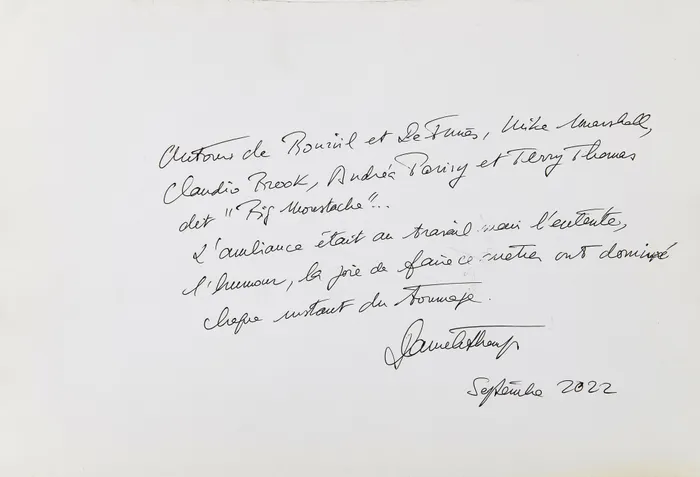 Autour de Bourvil et De Funès, Mike Marshall,
Claudio Brook, Andréa Parisy et Terry Thomas
dit "Big Moustache"...
L'ambiance était au travail mais l'entente,
l'humour, la joie de faire ce métier ont dominé
chaque instant du tournage.
Septembre 2022